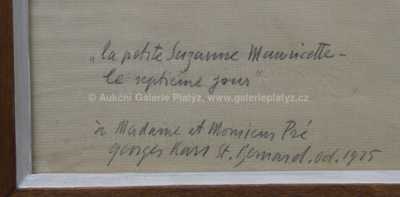 „la petite Suzanne Mauricette –
le septième jour"
© Aukční Galerie Platýz, www.galerieplatyz.cz
à Madame et Monsieur Pré
georges Kars St. Bernard. oct. 1925